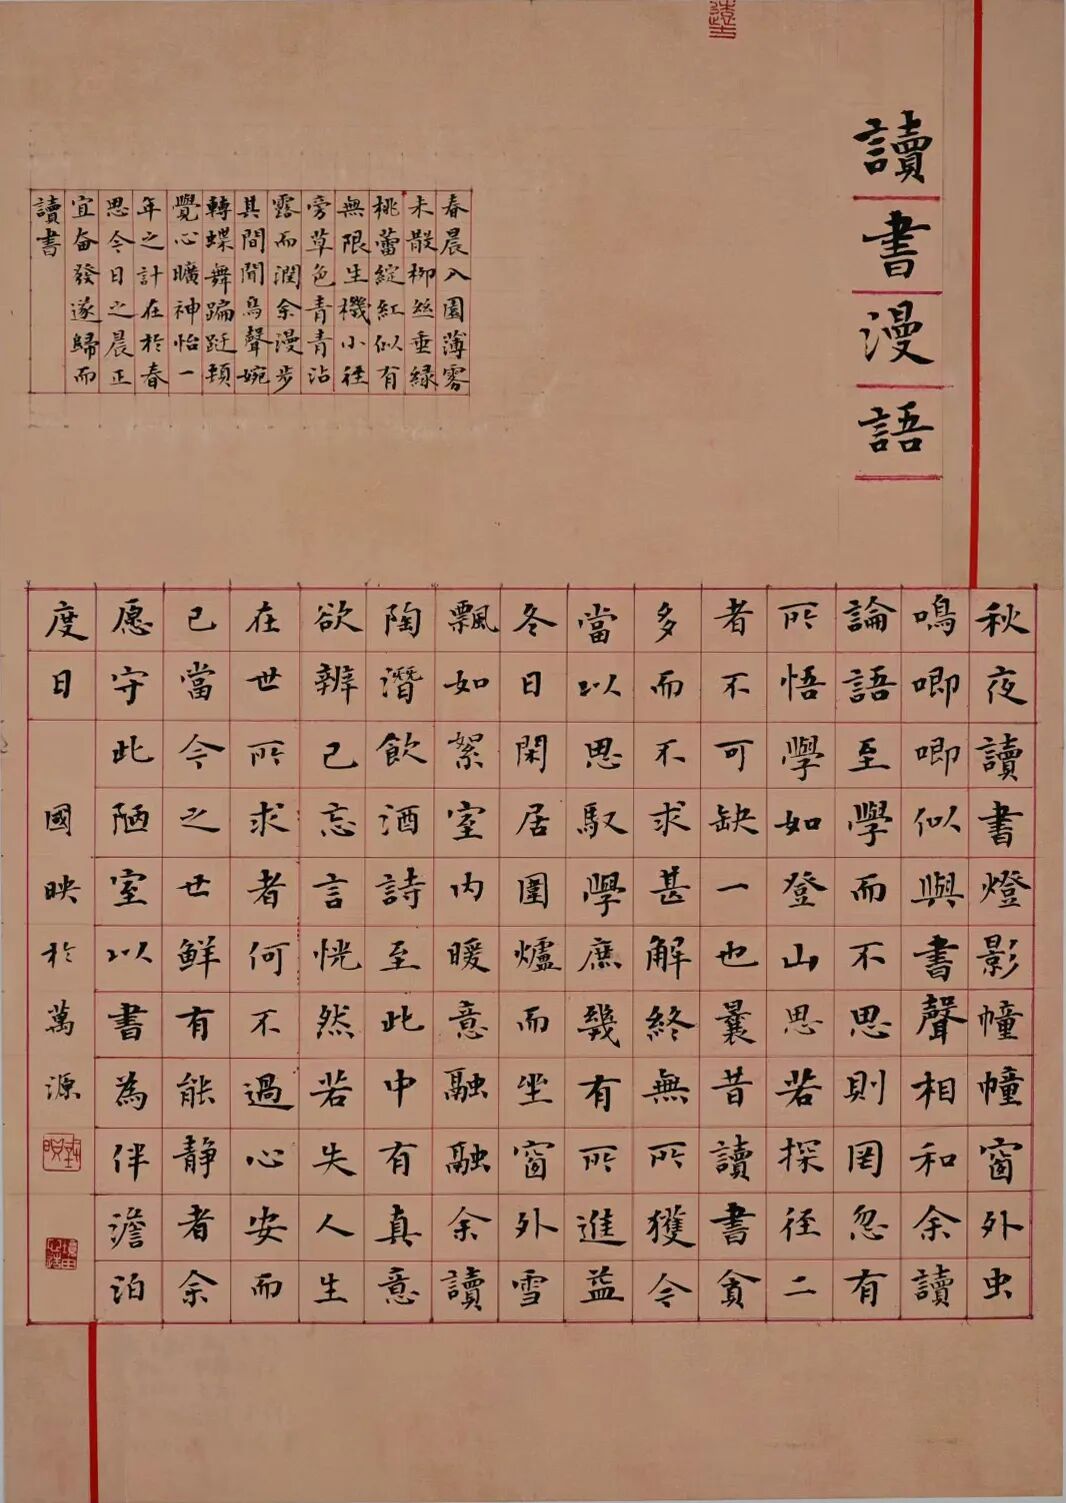 讀書漫語
春晨入園薄雾
未散柳丝垂緑
桃蕾綻紅似有
無限生機小徑
旁草色青青沾
露而潤余漫步
其間間鳥聲婉
轉蝶舞蹁跹頓
覺心曠神怡一
年之計在於春
思今日之晨正
宜奋發遂歸而
讀書
秋夜讀書燈影幢幢窗外虫
鳴唧唧似與書聲相和余讀
論語至學而不思則罔忽有
所悟學如登山思若探径二
者不可缺一也曩昔讀書貪
多而不求甚解終無所獲今
當以思馭學庶幾有所進益
冬日閑居圍爐而坐窗外雪
飄如絮室内暖意融融余讀
陶潛飲酒詩至此中有真意
欲辨已忘言恍然若失人生
在世所求者何不過心安而
已當今之世鲜有能静者余
愿守此陋室以書為伴澹泊
度日
國映於萬源